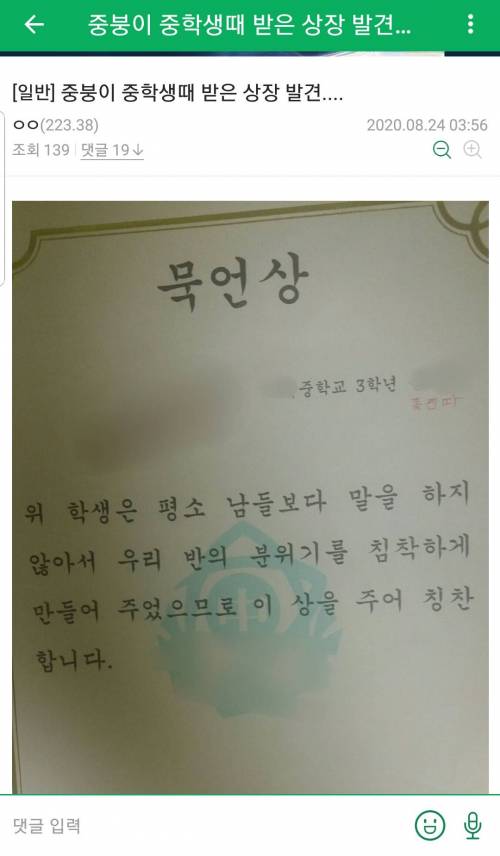 중붕이 중학생때 받은 상장 발견...
[일반] 중붕이 중학생때 받은 상장 발견....
ㅇㅇ(223.38)
2020.08.24 03:56
조회 139 | 댓글 19↓
묵언상
중학교 3학년
위 학생은 평소 남들보다 말을 하지
않아서 우리 반의 분위기를 침착하게
만들어 주었으므로 이 상을 주어 칭찬
합니다.
댓글 입력